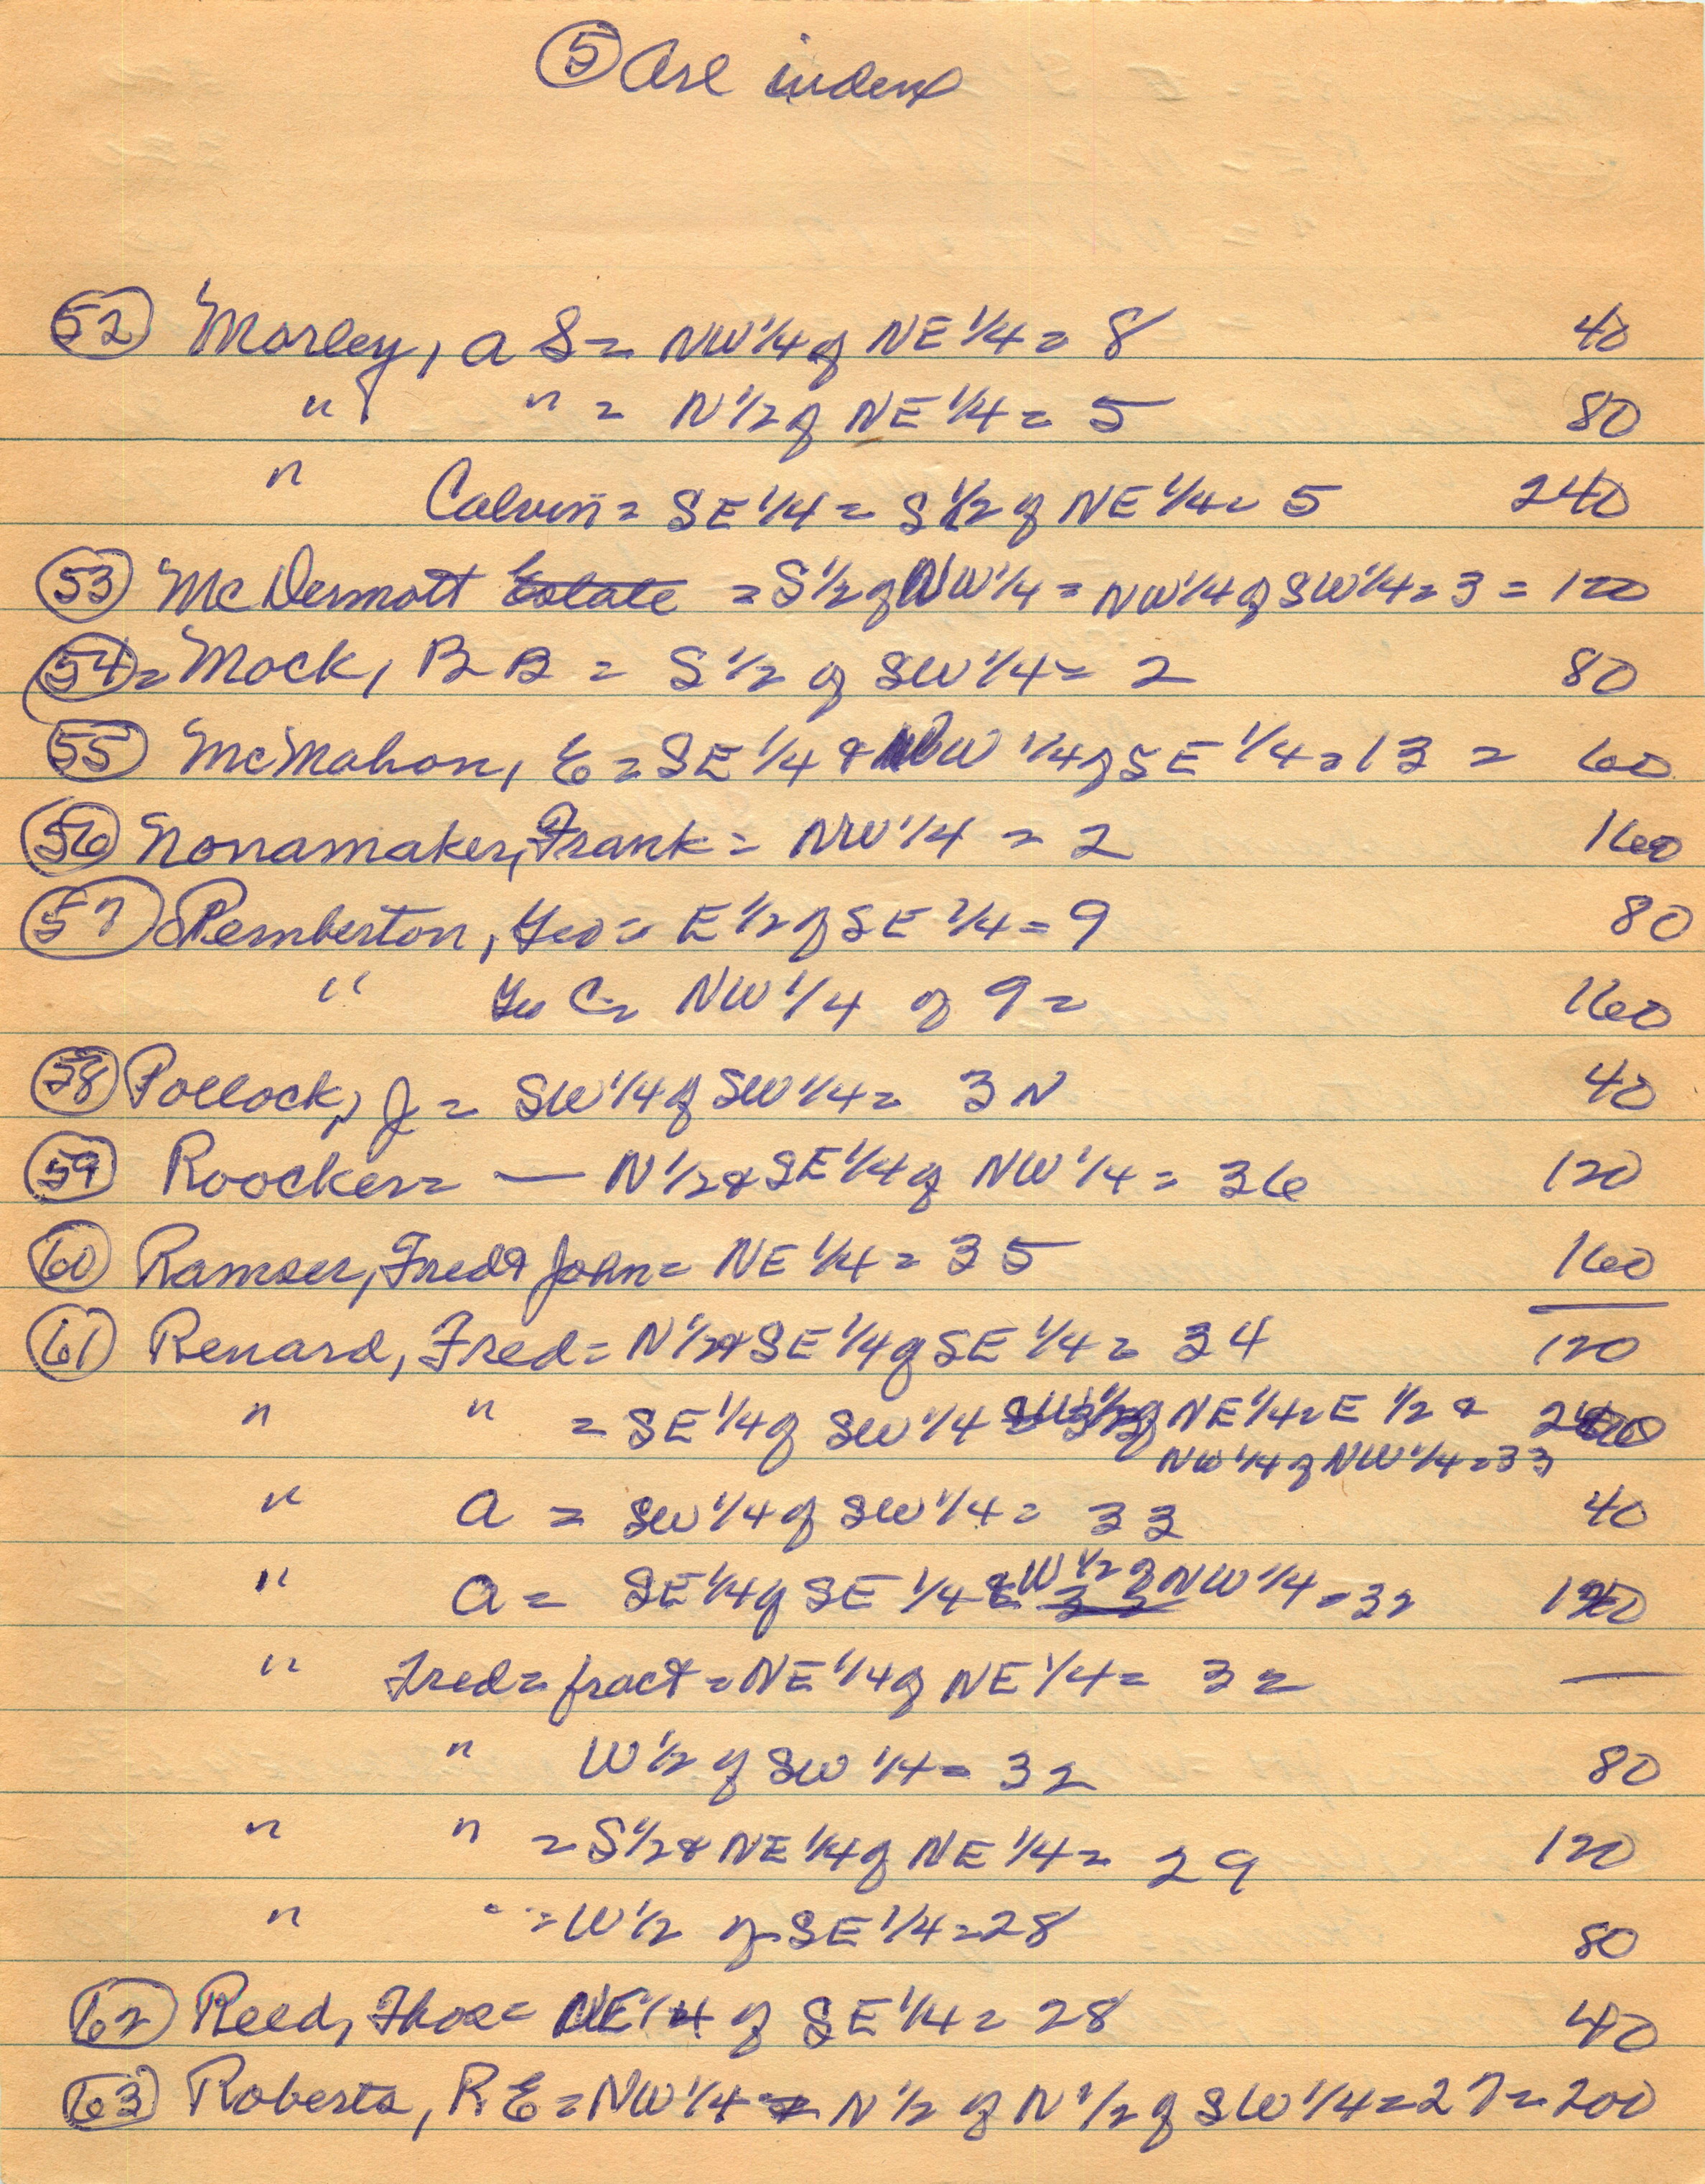 ⑤ Are index
52 Morley, A S = NW 1/4 of NE 1/4 = 8 40
" " = N 1/2 of NE 1/4 = 5 80
" Calvin = SE 1/4 = S 1/2 of NE 1/4 = 5 240
53 McDermott Estate = S 1/2 of NW 1/4 = NW 1/4 of SW 1/4 = 3 = 120
54 = Mock, B B = S 1/2 of SW 1/4 = 2 80
55 McMahon, E = SE 1/4 & NW 1/4 of SE 1/4 = 13 = 60
56 Nonamaker, Frank = NW 1/4 = 2 160
57 Pemberton, Geo = E 1/2 of SE 1/4 = 9 80
" Geo C = NW 1/4 of 9 = 160
58 Pollock, J = SW 1/4 of SW 1/4 = 3 N 40
59 Roocker = — N 1/2 & SE 1/4 of NW 1/4 = 36 120
60 Ramser, Fred & John = NE 1/4 = 35 160
61 Renard, Fred = N 1/2 & SE 1/4 of SE 1/4 = 34 120
" " = SE 1/4 of SW 1/4 of NE 1/4 = E 1/2 &
NW 1/4 of NW 1/4 = 33
" A = SW 1/4 of SW 1/4 = 33 40
" A = SE 1/4 of SE 1/4 & W 1/2 of NW 1/4 = 32 120
" Fred = fract = NE 1/4 of NE 1/4 = 32 —
" W 1/2 of SW 1/4 = 32 80
" " = S 1/2 & NE 1/4 of NE 1/4 = 29 120
" " = W 1/2 of SE 1/4 = 28 80
62 Reed, Thos = NE 1/4 of SE 1/4 = 28 40
63 Roberts, R E = NW 1/4 = N 1/2 of N 1/2 of SW 1/4 = 27 = 200